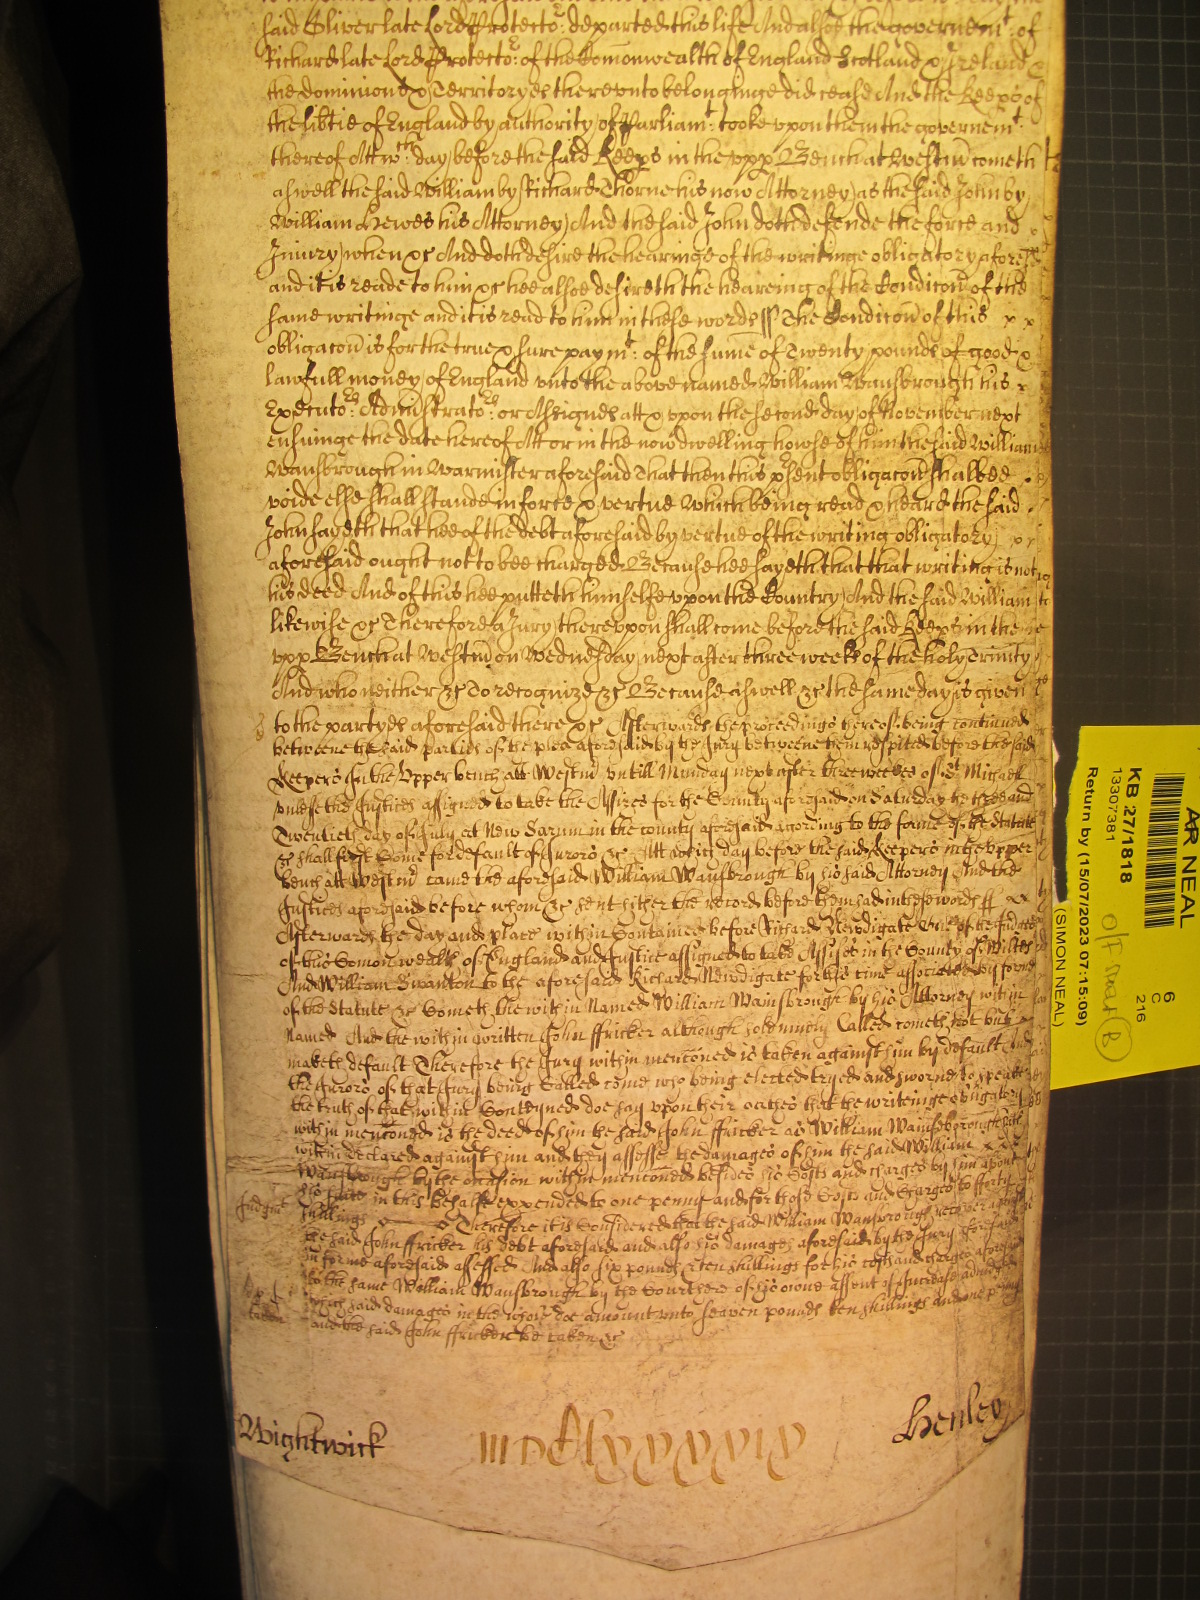 said Oliver late Lord Protector: departed this life And alsoe the governemt: of
Richard late Lord Protector: of the Comonwealth of England Scotland & Ireland &
the dominions & Territoryes thereunto belonginge did cease And the Keeps of
the libtie of England by authority of Parliamt: tooke upon them the governemt:
thereof Att wch: day before the said Keeps in the upp Bench at Westm cometh
aswell the said William by Richard Thorne his now Attorney as the said John by
William Hewes his Attorney And the said John doth defende the force and
Injury when &c And doth desire the hearinge of the writinge obligatory afores
and it is reade to him &c hee alsoe desireth the heareing of the Condicon of the
same writinge and it is read to him in these words ss The Condicon of this
obligacon is for the true & sure paymt: of the sume of Twenty pounds of good &
lawfull money of England unto the above named William Wansbrough his
Executors: Administrators: or Assignes att & upon the second day of November next
ensuinge the date hereof Att or in the now dwelling howse of him the said William
Wansbrough in Warmister aforesaid That then this psent obligacon shalbee
voide else shall stande in force & vertue Which being read & heard the said
John sayeth that hee of the debt aforesaid by vertue of the writing obligatory
aforesaid ought not to bee charged Because hee sayeth that that writing is not
his deed And of this hee putteth himselfe upon the Country And the said William
likewise &c Therefore a Jury thereupon shall come before the said Keeps in the
upp Bench at Westm on Wednesday next after three weeks of the holy Trinity
And who neither &c To recognize &c Because aswell &c the same day is given
to the partyes aforesaid there &c Afterwards the proceedings thereof being continued
betweene the said parties of the plea aforesaid by the Jury betweene them respited before the said
Keepers In the Upper bench att Westm untill Munday next after three weekes of St Michaell
unlesse the Justices assigned to take the Assizes for the County aforesaid on Saturday the three and
Twentieth day of July at New Sarum in the county aforesaid according to the forme of the Statute
&c shall first Come for default of Jurors &c Att which day before the said Keepers in the upper
bench att Westm came the aforesaid William Wansbrough by his said Attorney And the
Justices aforesaid before whom &c sent hither the record before them had in these words ss
Afterwards the day and place within Contained before Richard Newdigate One of the Judges
of this Comon wealth of England and Justice assigned to take Assises in the County of Wiltes
And William Swanton to the aforesaid Richard Newdigate for this time associated by forme
of the Statute &c Cometh the within Named William Wansbrough by his Attorney within
Named And the within written John ffricker although solemnely Called cometh not but
maketh default Therefore the Jury within menconed is taken against him by default And
the Jurors of that Jury being Called come who being elected tryed and sworne to speake
the truth of that within Conteyned doe say upon their oathes that the writeinge obligatory
within menconed is the deed of him the said John ffricker as William Wansbrough hath
within declared against him and they assesse the damages of him the said William
Wansbrough by the occasion within menconed besides his Costs and charges by him about
his suite in this behalfe expended to one penny and for those Costs and Charges to fforty
Judgmt
shillings Therefore it is Considered that the said William Wansbrough recover against
the said John ffricker his debt aforesaid and also his damages aforesaid by the Jury aforesaid
in forme aforesaid assessed And also six pounds & ten shillings for his costs and charges aforesaid
to the same William Wansbrough by the Court here of his owne assent of Increase adiudged
which said damages in the whole doe amount unto seaven pounds ten shillings and one penny
And the said John ffricker be taken &c
Wightwick
Henley
AR NEAL
KB 27/1818
13307381
Return by (15/07/2023 07:15:09)
(SIMON NEAL)
6
C
216